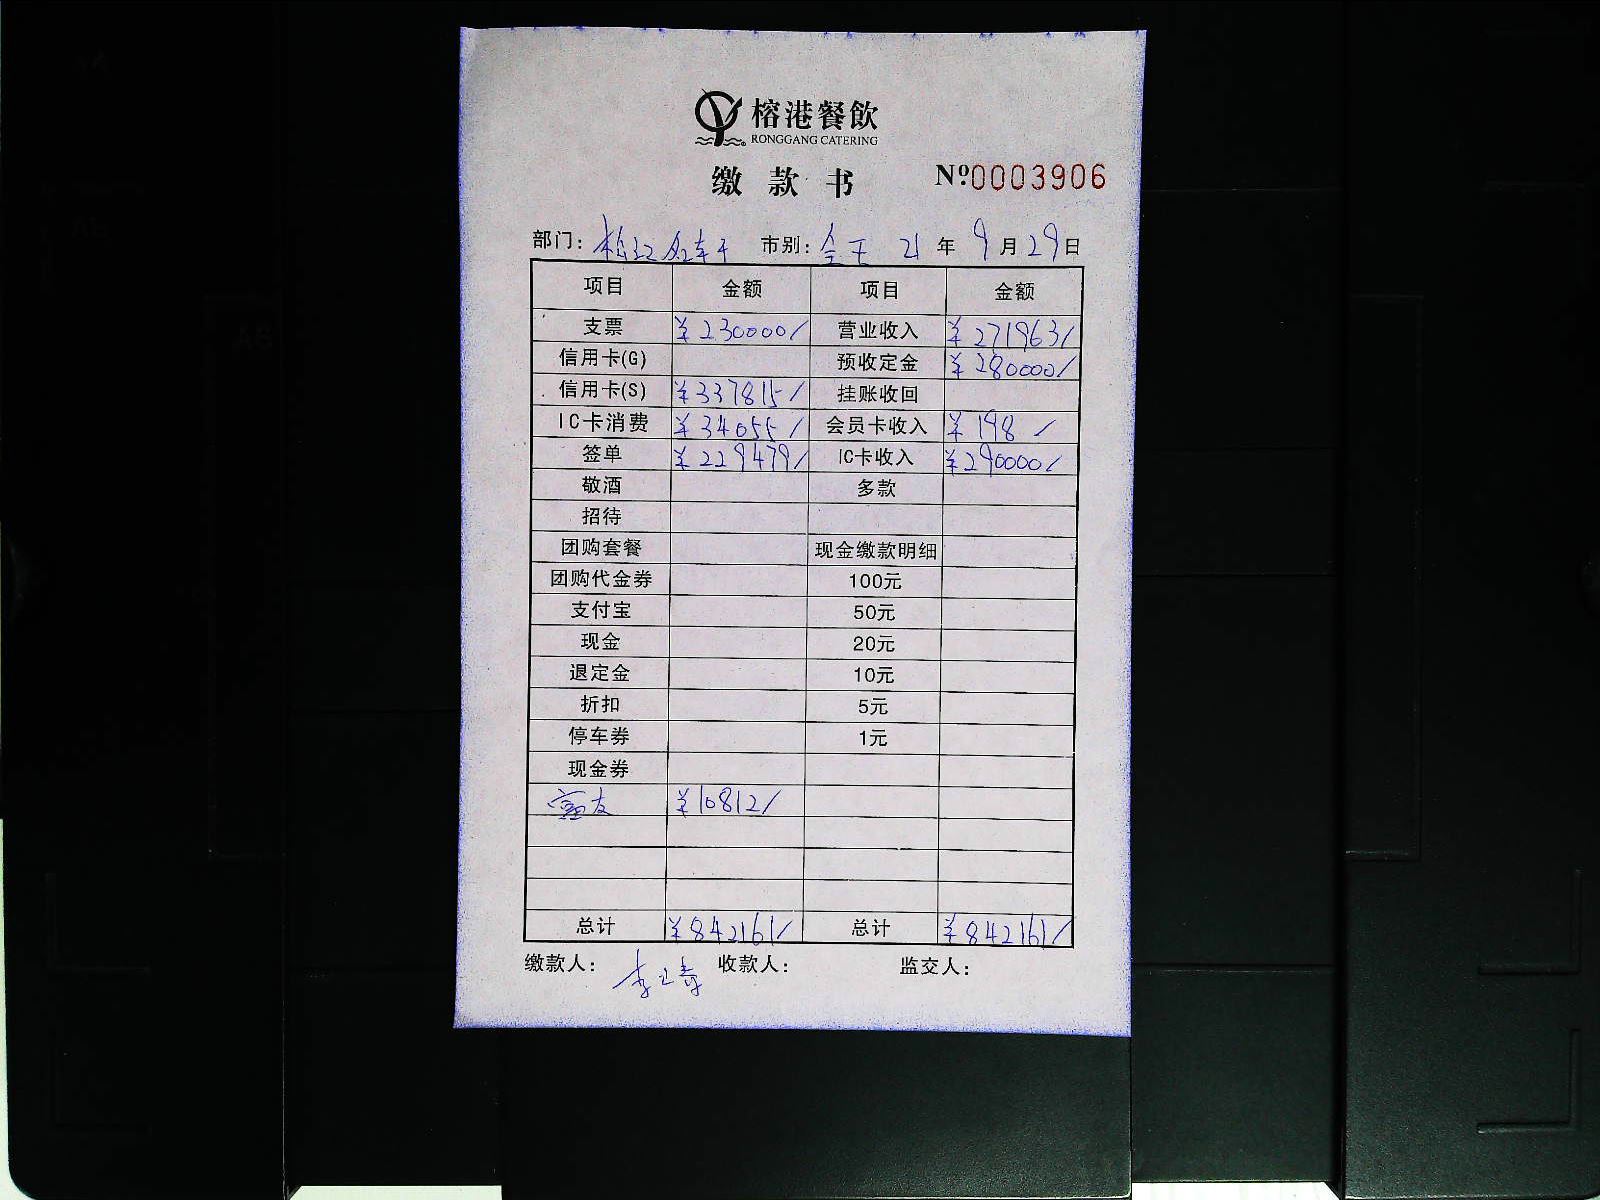 榕港餐飲
RONGGANG CATERING
缴款书 №0003906
部门: 松江 市别: 全天 21 年 9 月 29 日
项目 金额 项目 金额
支票 ¥230000/ 营业收入 ¥271963/
信用卡(G) 预收定金 ¥280000/
信用卡(S) ¥337815/ 挂账收回
IC卡消费 ¥34055/ 会员卡收入 ¥198/
签单 ¥229479/ IC卡收入 ¥290000/
敬酒 多款
招待
团购套餐 现金缴款明细
团购代金券 100元
支付宝 50元
现金 20元
退定金 10元
折扣 5元
停车券 1元
现金券
富友 ¥10812/
总计 ¥842161/ 总计 ¥842161/
缴款人: 收款人: 监交人: